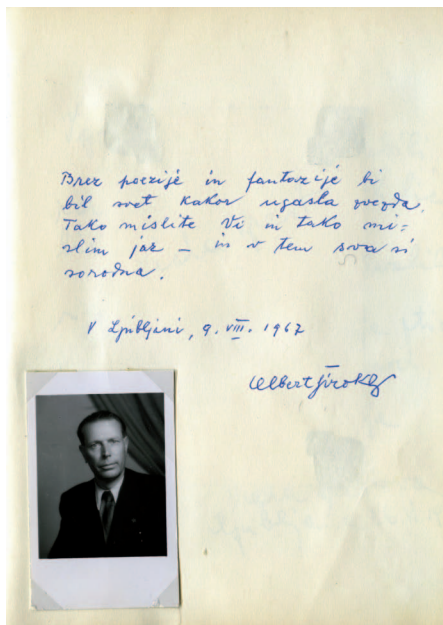 Brez poezije in fantazije bi
bil svet kakor ugasla zvezda.
Tako mislite Vi in tako mi=
slim jaz – in v tem sva si
sorodna.
V Ljubljani, 9. VIII. 1967
Albert Širok